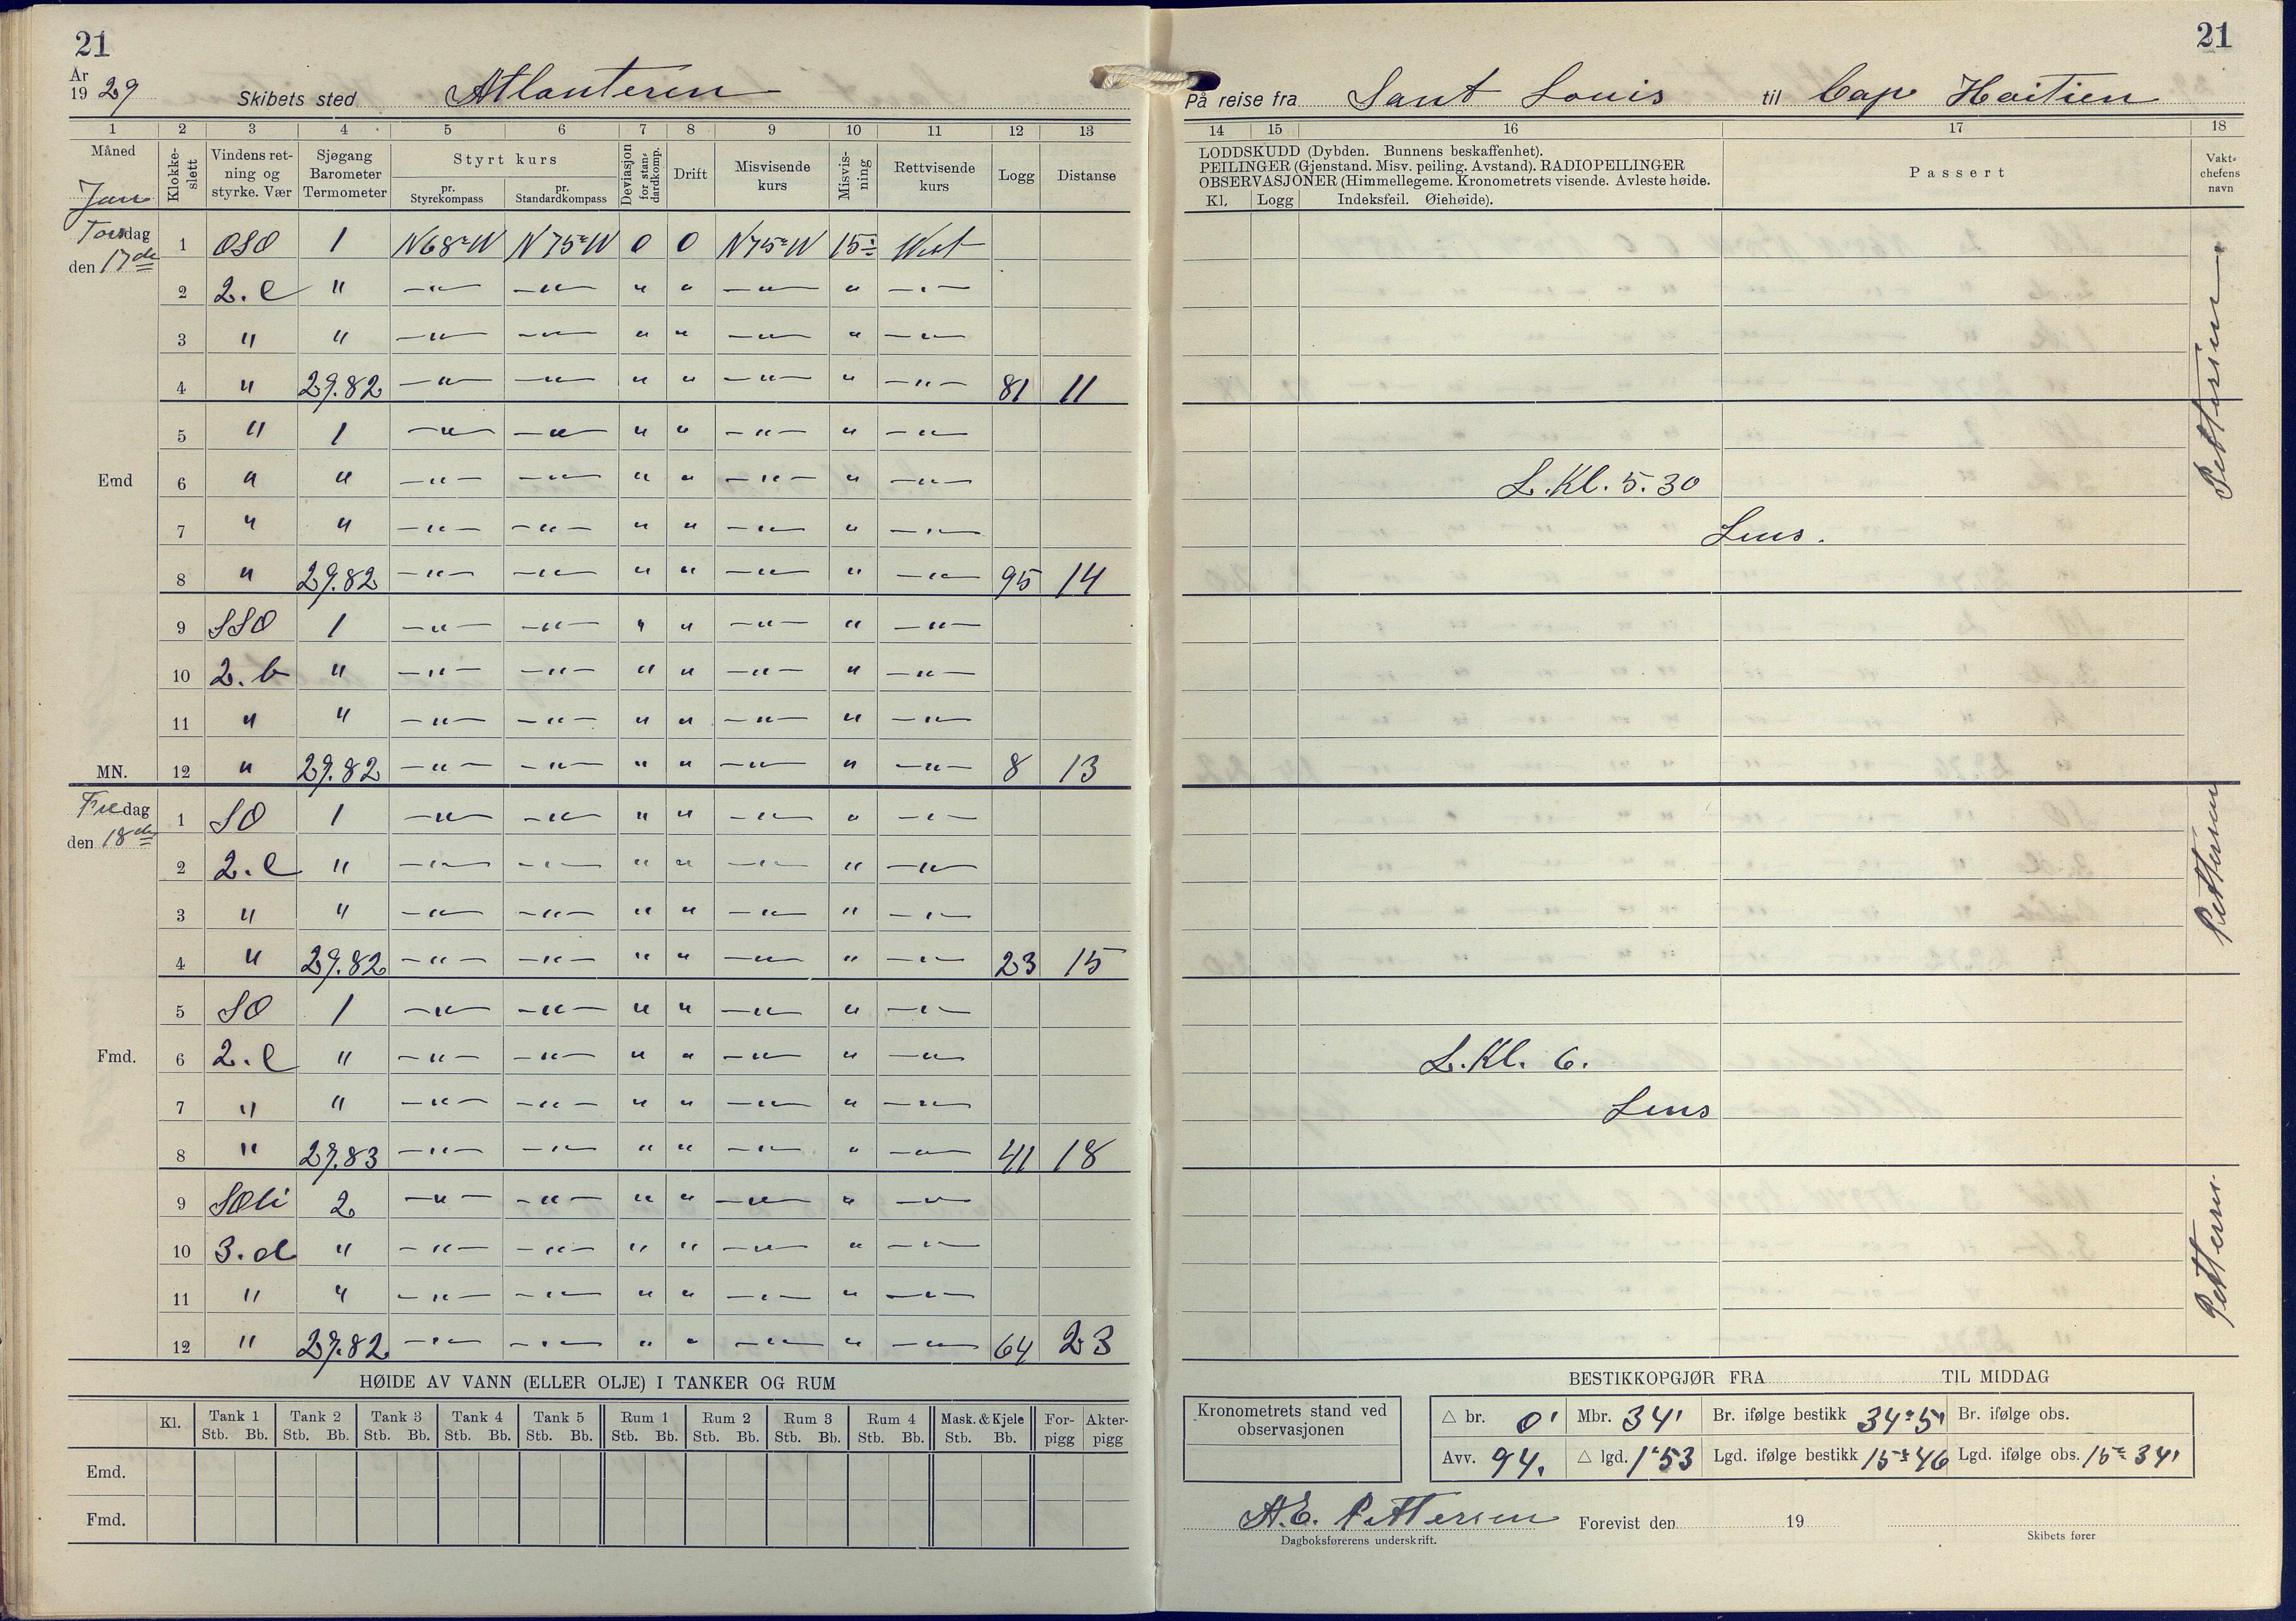 21
År
19 29 Skibets sted Atlanteren
1 2 3 4 5 6 7 8 9 10 11 12 13
Måned Jan
Klokkeslett
Vindens retning og styrke. Vær
Sjøgang Barometer Termometer
Styrt kurs
pr. Styrekompass
pr. Standardkompass
Deviasjon for standardkomp.
Drift
Misvisende kurs
Misvisning
Rettvisende kurs
Logg
Distanse
Torsdag
den 17de
1 OSO 1 N68°W N75°W 0 0 N75°W 15° West
2 2.c " —"— —"— " " —"— " —"—
3 " " —"— —"— " " —"— " —"—
4 " 29.82 —"— —"— " " —"— " —"— 81 11
5 " 1 —"— —"— " " —"— " —"—
Emd 6 " " —"— —"— " " —"— " —"—
7 " " —"— —"— " " —"— " —"—
8 " 29.82 —"— —"— " " —"— " —"— 95 14
9 SSO 1 —"— —"— " " —"— " —"—
10 2.b " —"— —"— " " —"— " —"—
11 " " —"— —"— " " —"— " —"—
MN. 12 " 29.82 —"— —"— " " —"— " —"— 8 13
Fredag
den 18de
1 SO 1 —"— —"— " " —"— " —"—
2 2.c " —"— —"— " " —"— " —"—
3 " " —"— —"— " " —"— " —"—
4 " 29.82 —"— —"— " " —"— " —"— 23 15
5 SO 1 —"— —"— " " —"— " —"—
Fmd. 6 2.c " —"— —"— " " —"— " —"—
7 " " —"— —"— " " —"— " —"—
8 " 29.83 —"— —"— " " —"— " —"— 41 18
9 2 —"— —"— " " —"— " —"—
10 3.d " —"— —"— " " —"— " —"—
11 " " —"— —"— " " —"— " —"—
12 " 29.82 —"— —"— " " —"— " —"— 64 23
HØIDE AV VANN (ELLER OLJE) I TANKER OG RUM
Kl. Tank 1 Tank 2 Tank 3 Tank 4 Tank 5 Rum 1 Rum 2 Rum 3 Rum 4 Mask. & Kjele For-pigg Akter-pigg
Stb. Bb. Stb. Bb. Stb. Bb. Stb. Bb. Stb. Bb. Stb. Bb. Stb. Bb. Stb. Bb. Stb. Bb. Stb. Bb.
Emd.
Fmd.
21
På reise fra Sant Louis til Cap Haitien
14 15 16 17 18
LODDSKUDD (Dybden. Bunnens beskaffenhet).
PEILINGER (Gjenstand. Misv. peiling. Avstand). RADIOPEILINGER
OBSERVASJONER (Himmellegeme. Kronometrets visende. Avleste høide.
Kl. Logg Indeksfeil. Øiehøide).
Passert
Vaktchefens navn
Pettersen
L. Kl. 5.30
Lens.
Pettersen
L. Kl. 6.
Lens
Pettersen
BESTIKKOPGJØR FRA TIL MIDDAG
Kronometrets stand ved observasjonen
△ br. 0' Mbr. 34' Br. ifølge bestikk 34°5' Br. ifølge obs.
Avv. 94. △ lgd. 1°53 Lgd. ifølge bestikk 15°46 Lgd. ifølge obs. 15°34'
A.E. Pettersen Forevist den 19
Dagboksførerens underskrift. Skibets fører